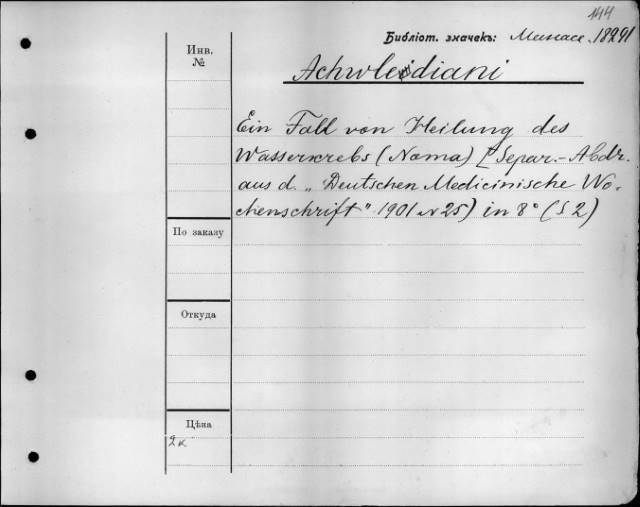 144
Библіот. значекъ: 18291
Инв.
№
Achwlediani
Ein Fall von Heilung des
Wasserkrebs (Noma) [Separ.-Abdr.
aus d. „Deutschen Medicinische Wo-
chenschrift" 1901 N 25) in 8° (S 2)
По заказу
Откуда
Цѣна
2к